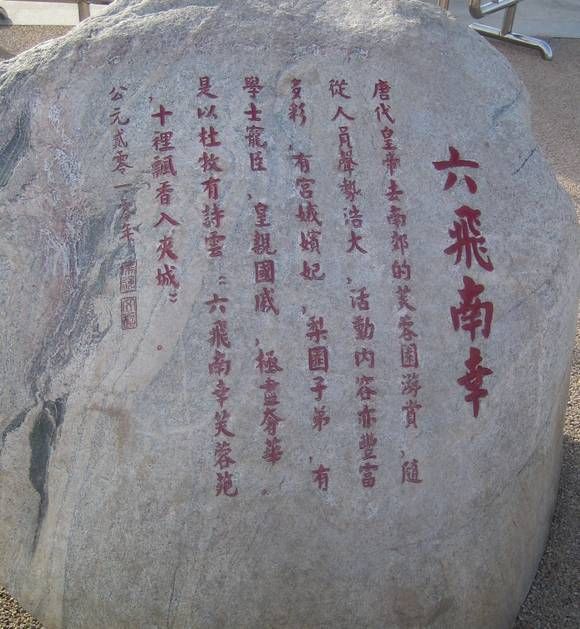 六飛南幸
唐代皇帝去南郊的芙蓉園游賞，隨
從人員聲勢浩大，活動內容亦豐富
多彩，有宮娥嬪妃，梨園子弟，有
學士寵臣，皇親國戚，極盡奢華。
是以杜牧有詩雲：“六飛南幸芙蓉苑
，十裡飄香入夾城”。
公元貳零一零年